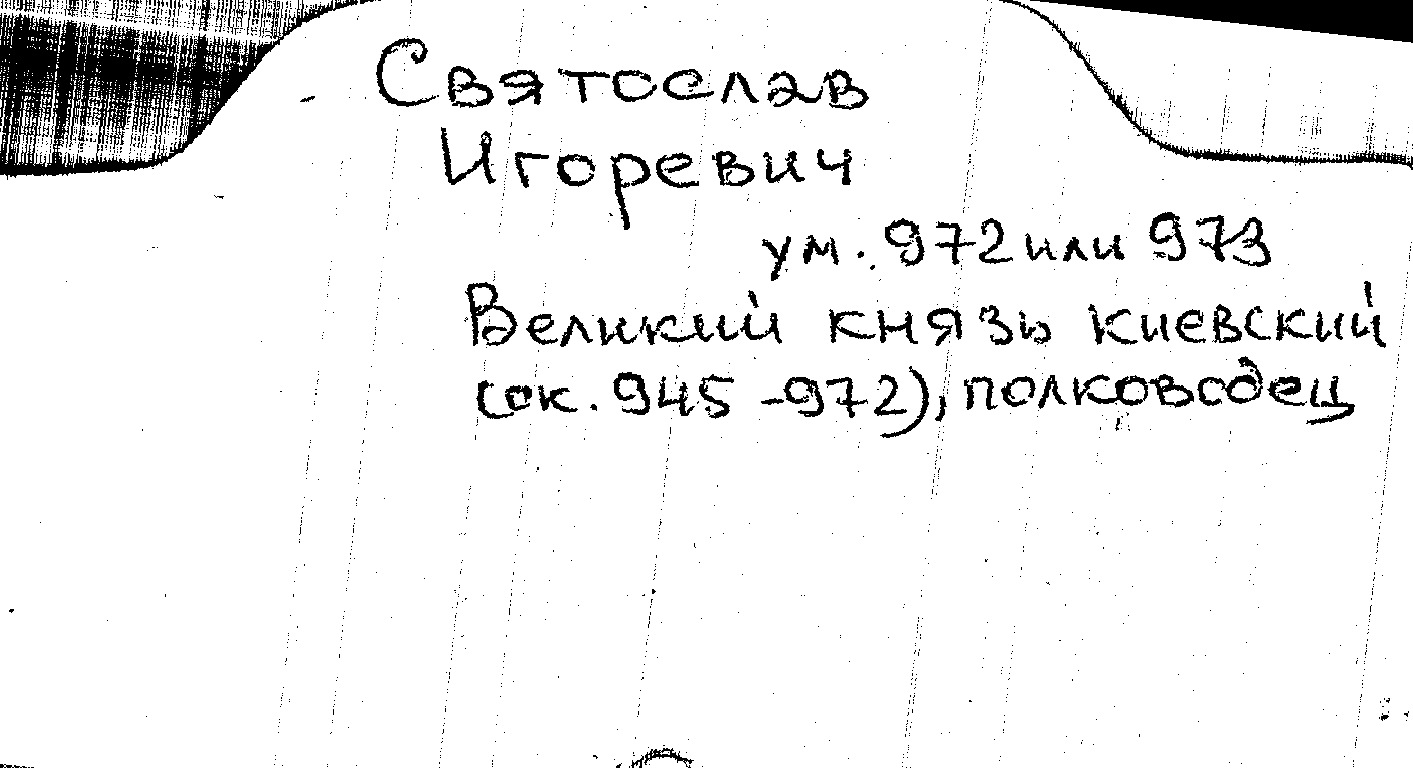 Святослав
Игоревич
ум. 972 или 973
Великий князь киевский
(ок. 945 - 972), полководец